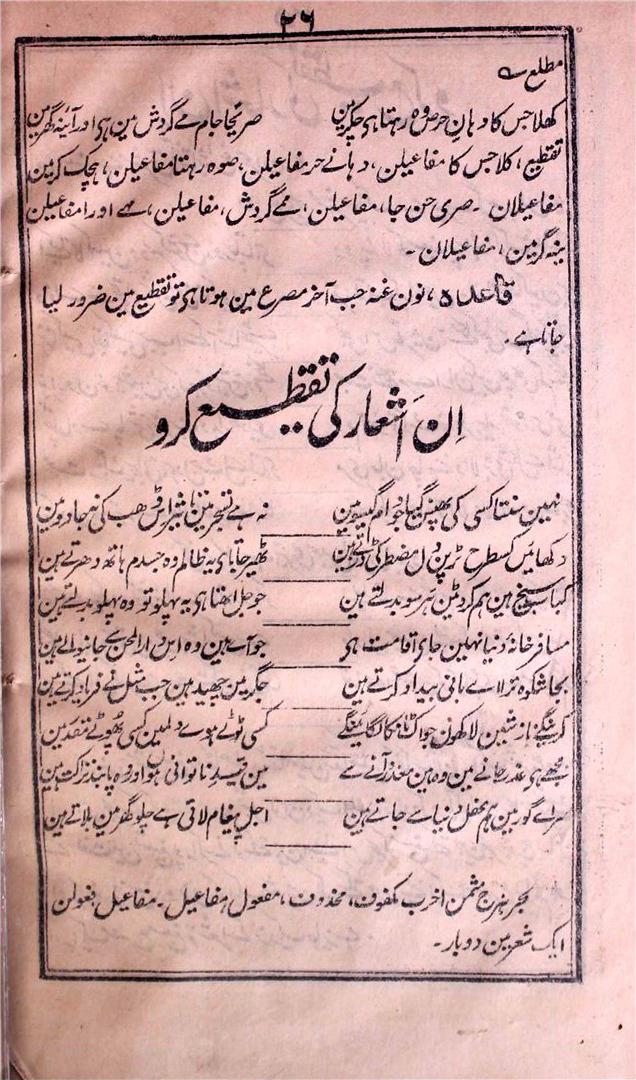 ۲۶
مطلع ؎
کھلا جس کا دہانِ حرص وہ رہتا ہی چکر مین صریحا جام مے گردش مین ہی اور آینہ گھر مین
تقطیع، کلا جس کا مفاعیلن، دہانے حر مفاعیلن، صوہ رہتا مفاعیلن، ہچک کر مین
مفاعیلان ۔ صری حن جا، مفاعیلن، مے گردش، مفاعیلن، مہے اور ا مفاعیلن
ینہ گر مین، مفاعیلان ۔
قاعدہ، نون غنہ جب آخر مصرع مین ہوتا ہی تو تقطیع مین ضرور لیا
جاتا ہے ۔
اِن اَشعار کی تقطیع کرو
نہین سنتا کسی کی پھنس گیا جو دام گیسو مین نہ ہے تسخیر مین تاثیر اس ڈھب کی نہ جادو مین
دکھائین کسطرح تڑپن دل مضطر کی ڈرتے ہین ٹھیر جاتا ہی یہ ظالم وہ جسدم ہاتھ دھرتے ہین
کباب سیخ ہین ہم کروٹین ہر سو بدلتے ہین جو جل اٹھتا ہی یہ پہلو تو وہ پہلو بدلتے ہین
مسافر خانۂ دنیا نہین جای اقامت ہی جو آے ہین وہ اس دار المحن سے جانیوالے ہین
بجا شکوہ ترا اے بانی بیداد کرتے ہین جگر مین چھید ہین جب مثل نے فریاد کرتے ہین
کرینگے ناز شین لاکھون جو اک کا لگا ئینگے کسی ٹوٹے ہوے دلمین کسی پھوٹے مقدر مین
مجھے ہی عذر جانے مین وہ ہین معذر آنے سے مین قید ناتوانی ہون اور وہ پابند نزاکت ہین
سراے گور مین ہم محفل دنیا سے جاتے ہین اجل پیغام لاتی ہے چلو گھر مین بلاتے ہین
بحر ہزج مثمن اخرب مکفوف، محذوف، مفعول مفاعیل ۔ مفاعیل فعولن
ایک شعر مین دوبار ۔